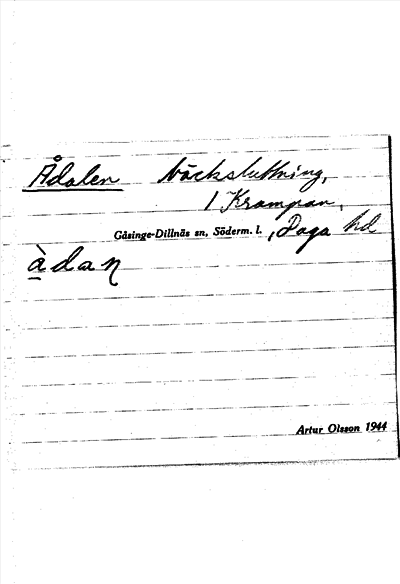 Ådalen bäcksluttning,
1 Krampan,
Gåsinge-Dillnäs sn, Söderm. l., Daga hd
àdan
Artur Olsson 1944